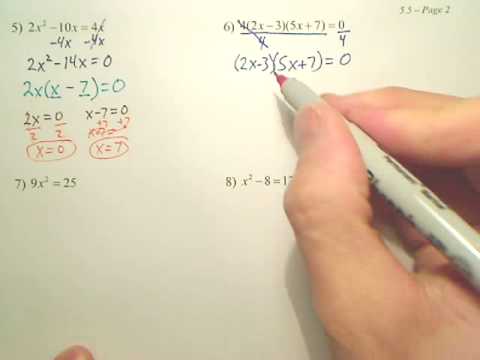 5.5 – Page 2
5) 2x² – 10x = 4x
-4x -4x
2x² - 14x = 0
2x(x - 7) = 0
2x = 0 x - 7 = 0
2 2 +7 +7
x = 0 x = 7
6) 4(2x – 3)(5x + 7) = 0
4 4
(2x - 3)(5x + 7) = 0
7) 9x² = 25
8) x² – 8 = 17